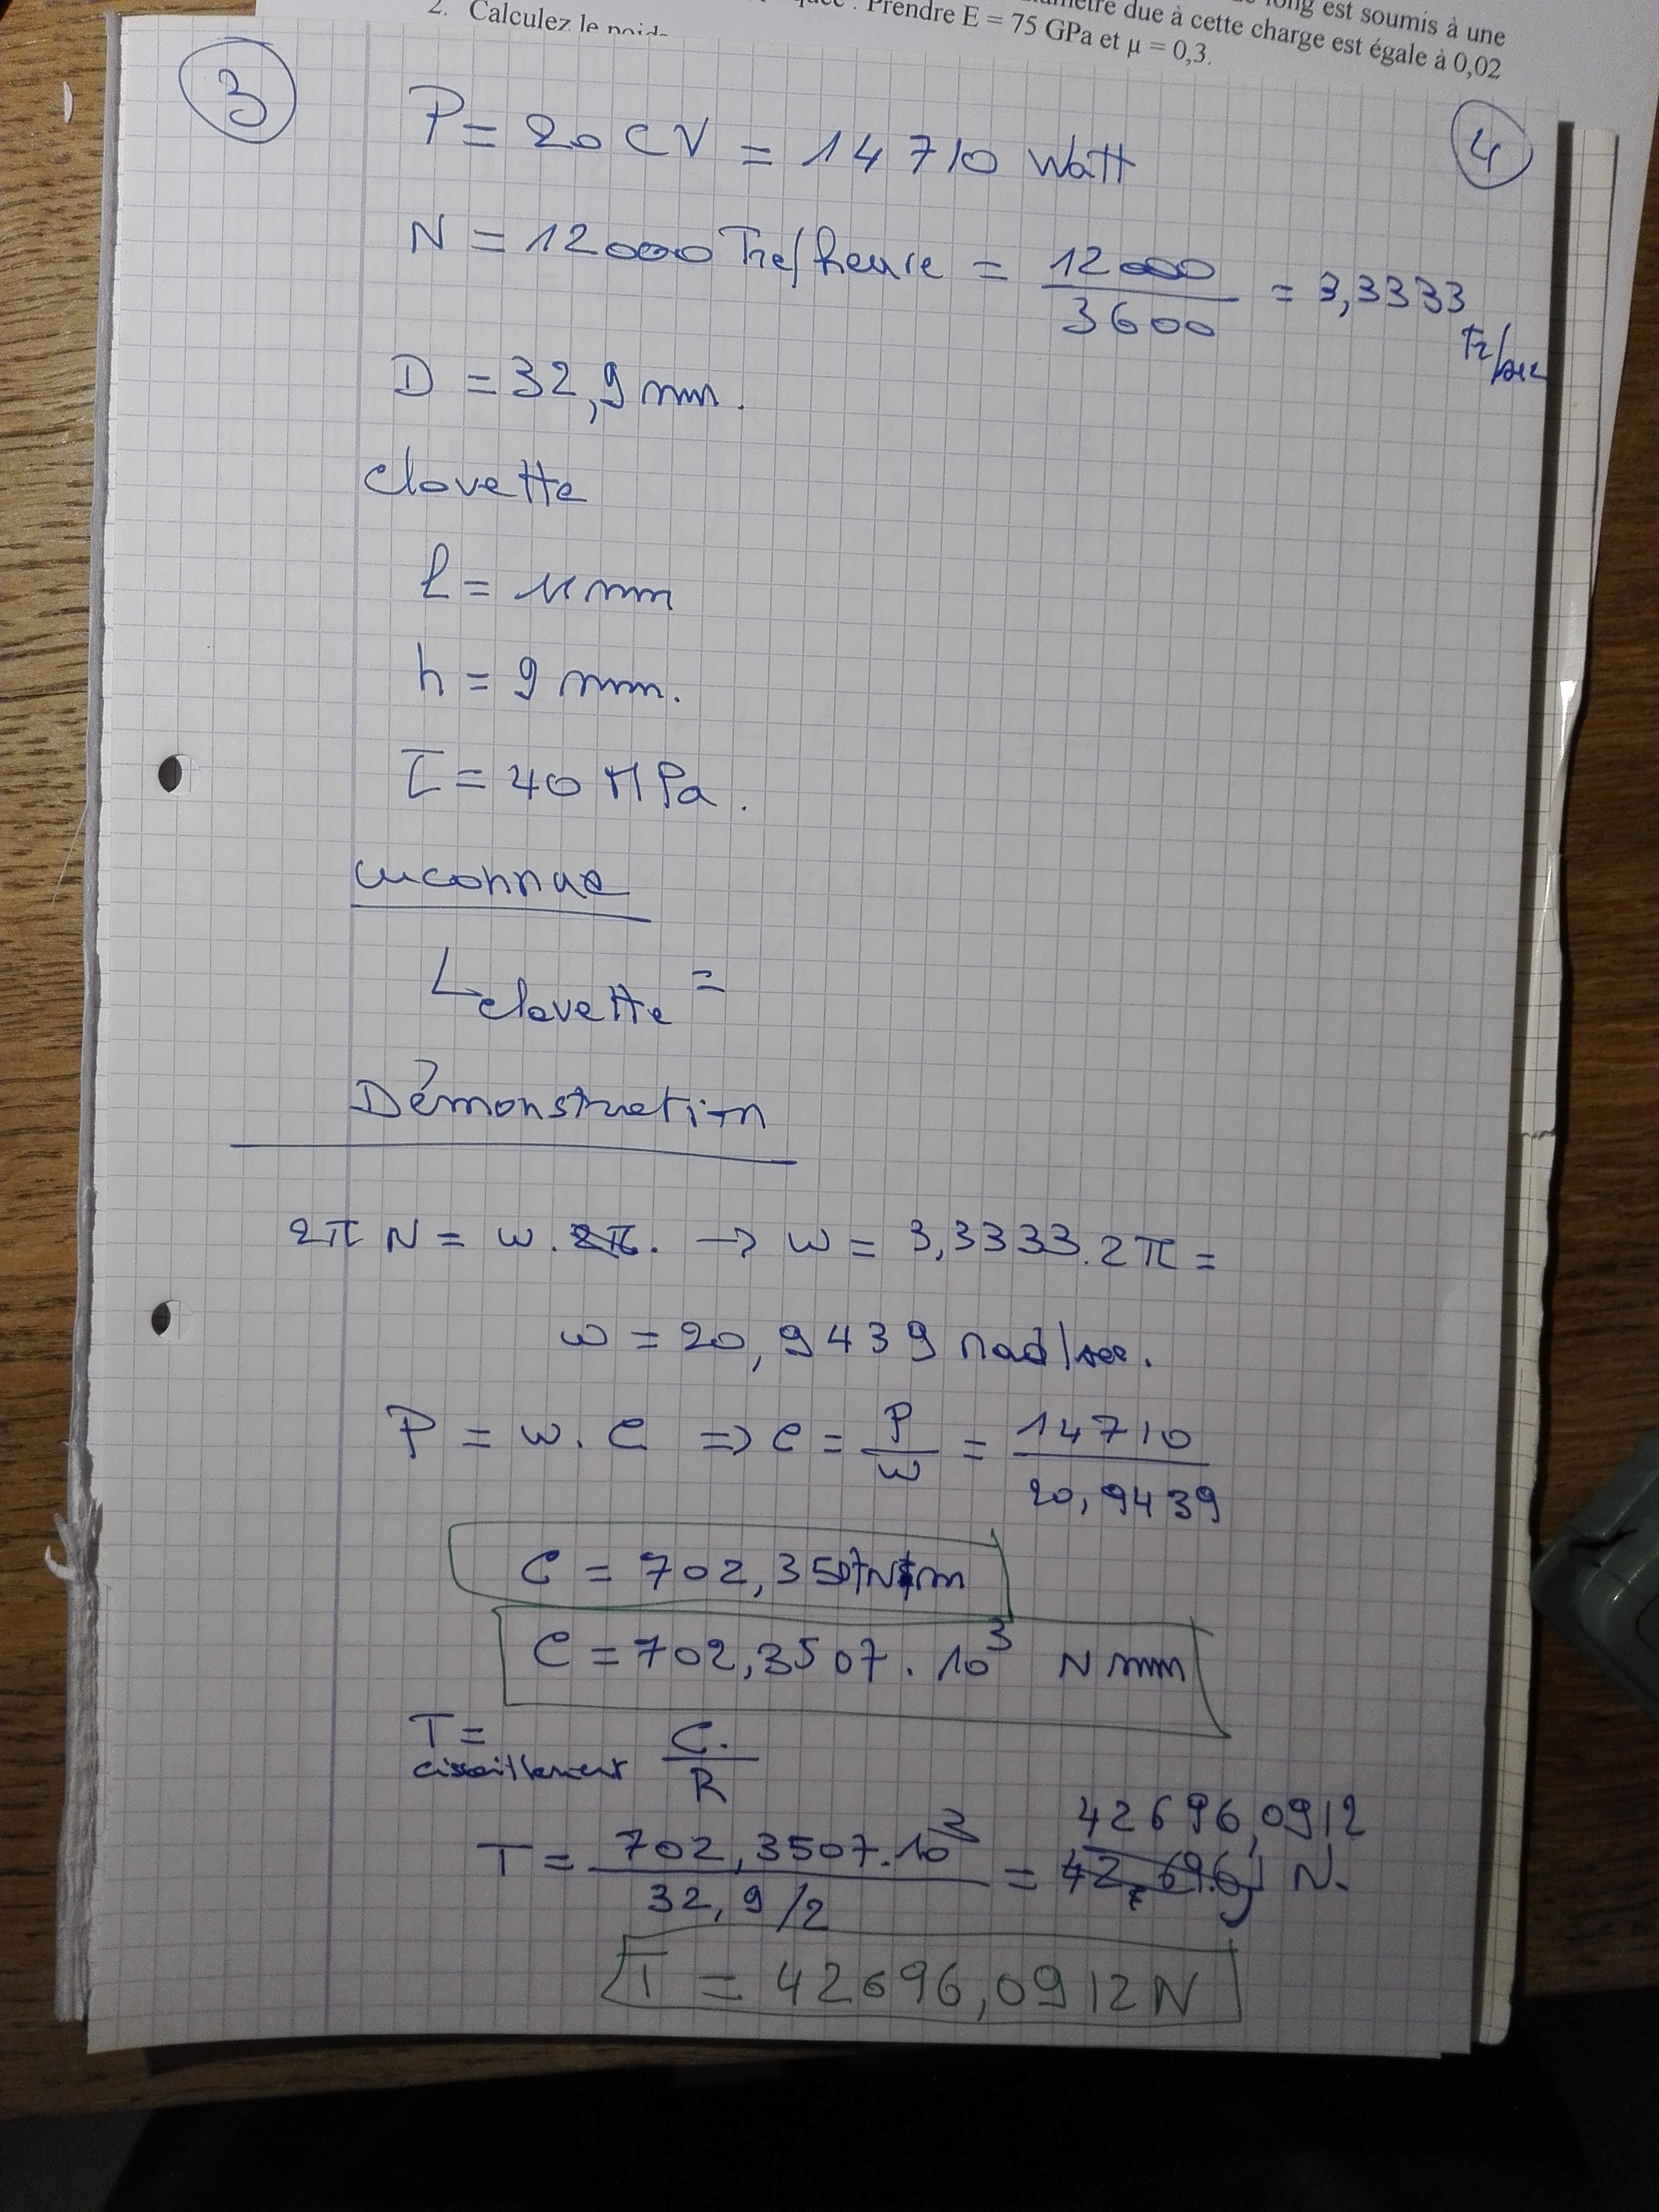 long est soumis à une
due à cette charge est égale à 0,02
Prendre E = 75 GPa et μ = 0,3.
2. Calculez le poids
3
4
P = 20 CV = 14710 Watt
N = 12000 Tre/heure = 12000/3600 = 3,3333 Tr/sec
D = 32,9 mm.
clavette
l = 11 mm
h = 9 mm.
τ = 40 MPa.
inconnue
L clavette =
Démonstration
2π N = w. → w = 3,3333.2π =
w = 20,9439 rad/sec.
P = w.C ⇒ C = P/w = 14710/20,9439
C = 702,3507 N m
C = 702,3507.10³ N mm
T cisaillement = C./R
T = 702,3507.10³ / 32,9/2 = 42696,0912 N.
T = 42696,0912 N